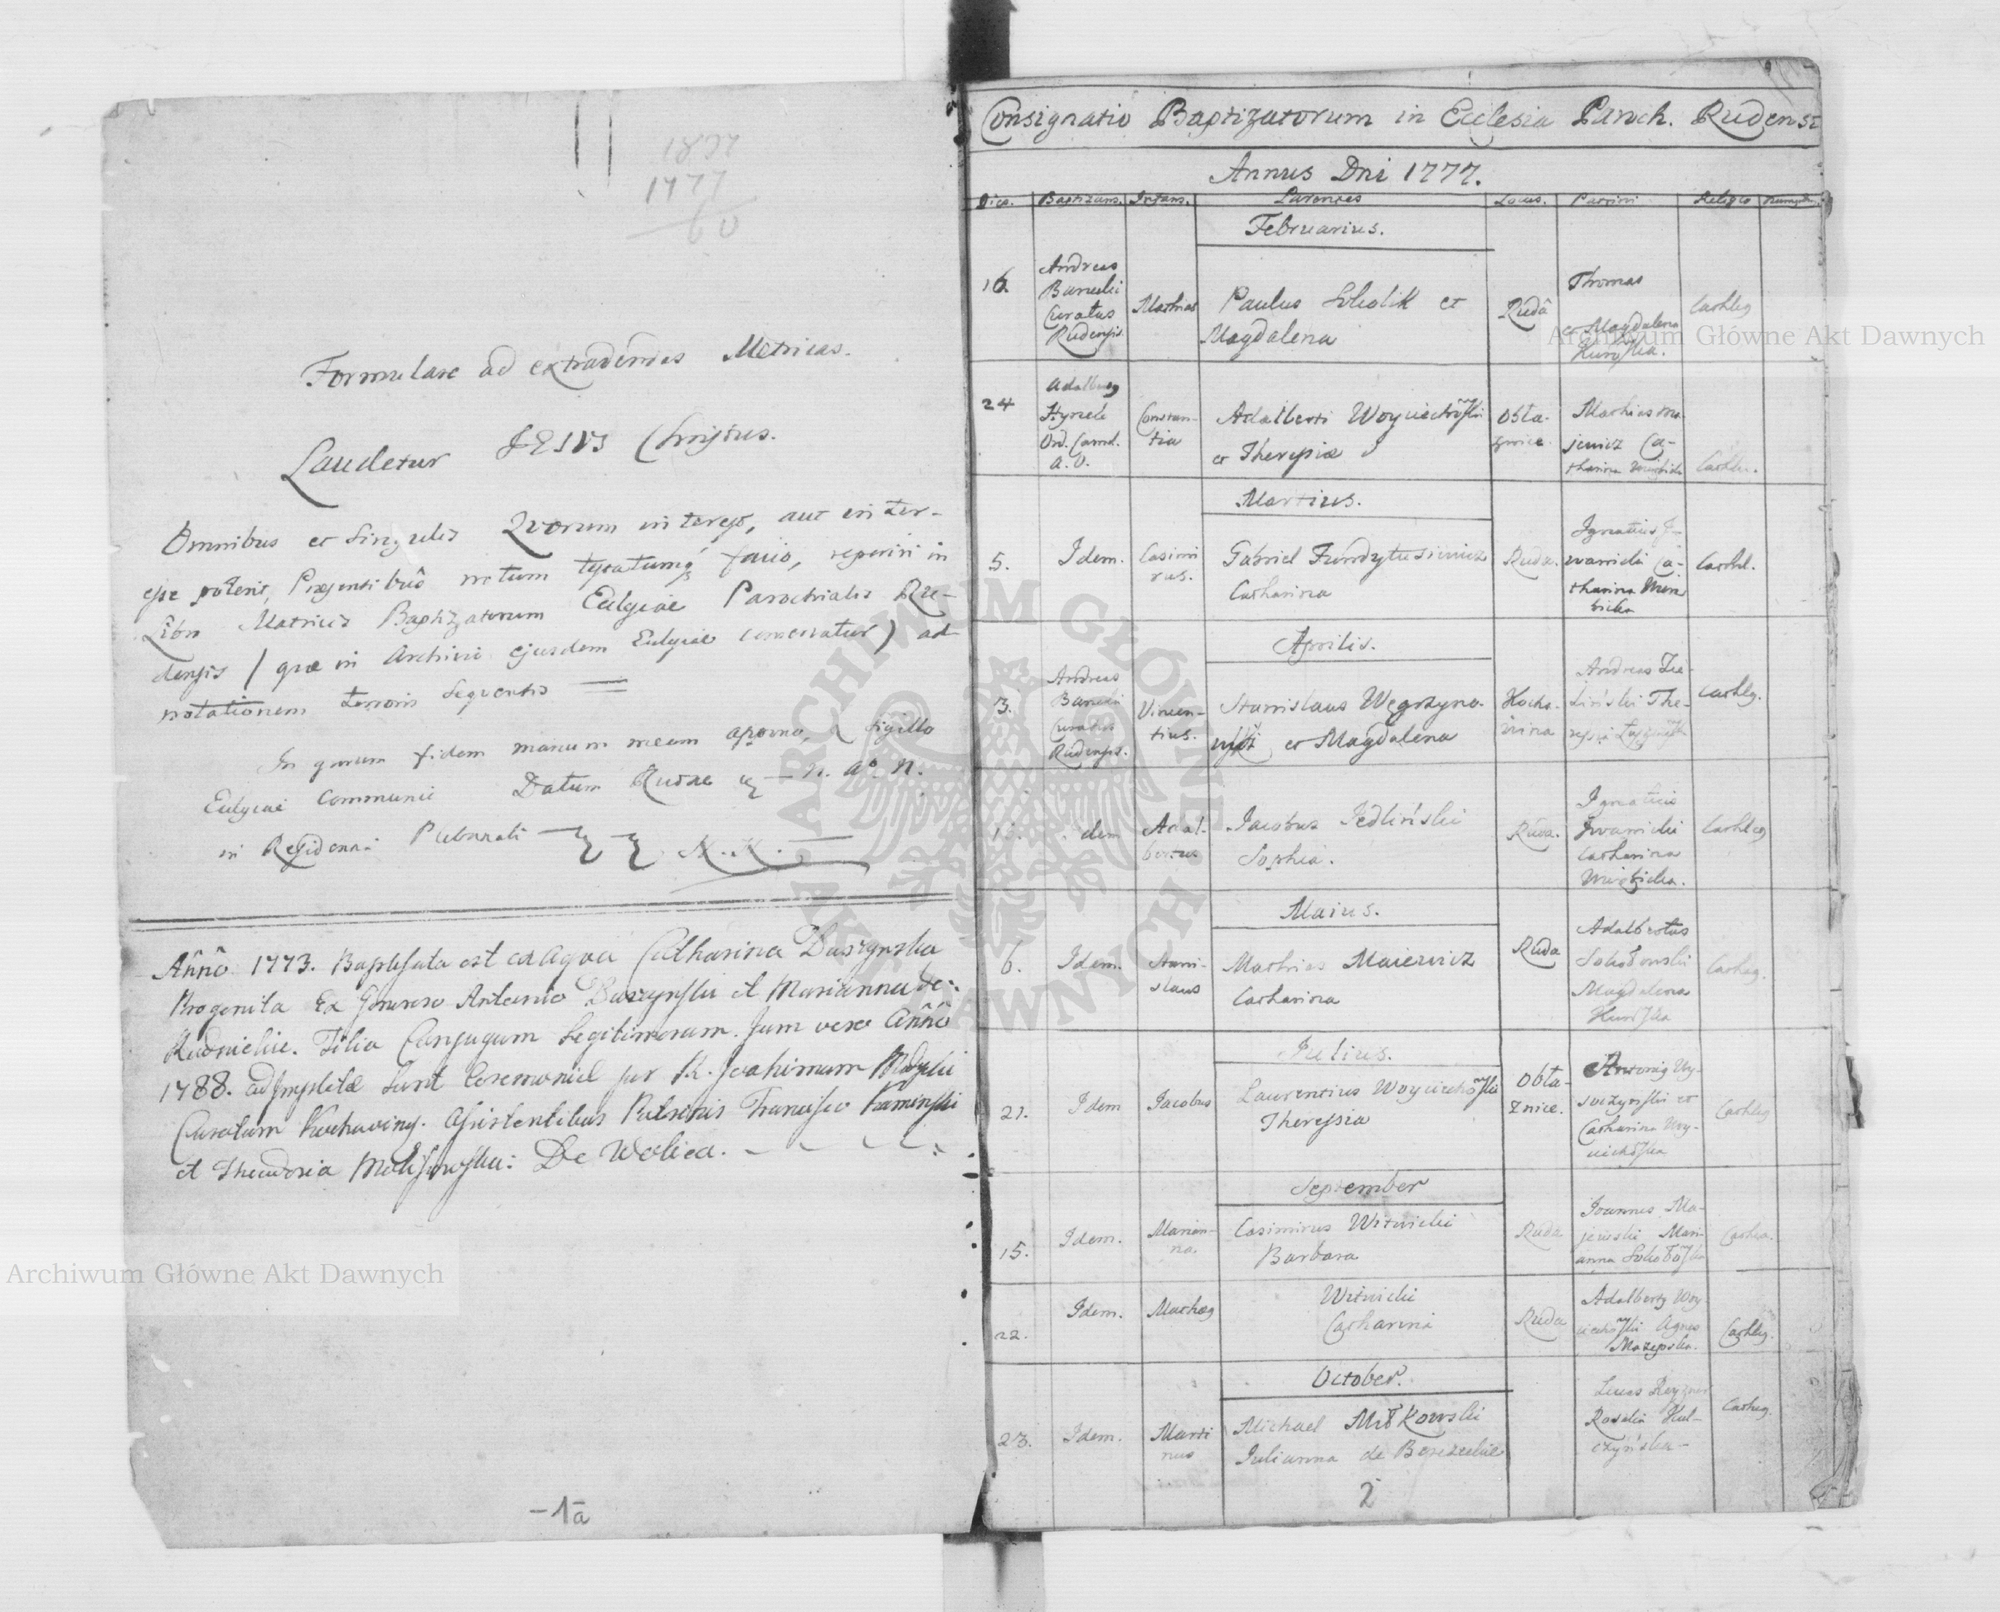 1877
1777
60
Formulare ad extradendas Metricas.
Laudetur JESUS Christus.
Omnibus et Singulis Quorum interest, aut inter-
esse poterit, Praesentibus notum testatumq facio, reperiri in
Libro Matrices Baptizatorum Ecclesiae Parochialis Ru-
densis / quae in Archivo ejusdem Ecclesiae conservatur) ad
notationem tenoris Sequentis
In quorum fidem manum meam appono, & sigillo
Ecclesiae communi Datum Rudae n. Ao. N.
in Residentia N. N.
Añnô 1773. Baptisata est ex aqua Catharina Duszynska
Progenita Ex Antonio Duszynski et Marianna de
Rudnickie. Filia Conjugum Legitimorum. Jam vero Añnô
1788. adimpletae sunt Ceremoniae per R. Joachimum
Curatum Kochavinj. Assistentibus Patrinis Francisco Kaminski
et Theodoria De Wolica.
-1a
Consignatio Baptizatorum in Ecclesia Paroch. Rudensi
Annus Dni 1777.
Dies. Baptizans. Infans. Parentes Locus. Patrini Religio
Februarius.
16. Andreas Curatus Rudensis. Mathias Paulus et Magdalena Ruda Thomas et Magdalena Cathlcq
24 Constan-tia Adalberti Woyciechowski et Theresiae Obła-znice. Mathias Ma-jewicz Ca-tharina Cathlic.
Martius.
5. Idem. Casimi rus. Gabriel Catharina Ruda. Ignatius I-wanicki Ca-tharina Cathl.
Aprilis.
3. Andreas Curatus Rudensis. Vincen-tius. Stanislaus Węgrzyno-wski et Magdalena Kocha-wina Andreas Zie-liński The-resia Cathlq.
Idem Adal-bertus Jacobus Jedliński Sophia. Ruda. Ignatius Iwanicki Catharina Cathlcq
Maius.
6. Idem. Stani-slaus Mathias Maiewicz Catharina Ruda Adalbertus Sokołowski Magdalena Cathcq.
Julius.
21. Idem Jacobus Laurentius Woyciechowski Theressia Obła-znice. Antonig Catharina Woy-ciechowska Cathlcq
September
15. Idem. Marian-na. Casimirus Witwicki Barbara Ruda Joannes Ma-jewski Mari-anna Sokołowska Cathca.
22. Idem. Mathæq Witwicki Catharina Ruda Adalbertq Woy-ciechowski Agnes Cathlcq.
October.
23. Idem. Marti nus Michael Miłkowski Julianna de Lucas Rosalia Hul-czyńska- Cathcq.
2
Archiwum Główne Akt Dawnych
Archiwum Główne Akt Dawnych
ARCHIWUM GŁÓWNE AKT DAWNYCH